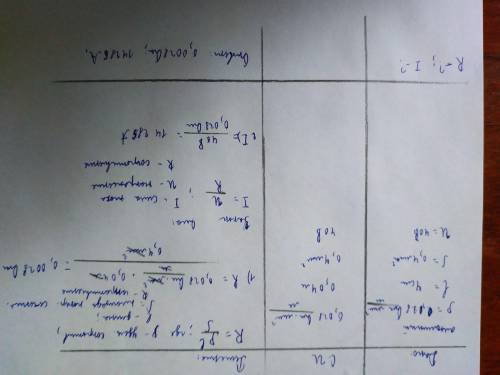 Дано:
алюминий
ρ = 0,028 Ом·мм²/м
l = 4см
S = 0,4мм²
U = 40В
R - ?; I - ?
СИ
0,028 Ом·мм²/м
0,04м
0,4мм²
40В
Решение:
R = ρl/S; где ρ - удел. сопротивл,
l - длина;
S - площадь попер. сечения.
R - сопротивление
1) R = 0,028 Ом·мм²/м · 0,04м / 0,4мм² = 0,0028 Ом
Закон Ома:
I = U/R; I - сила тока
U - напряжение
R - сопротивление
2) I = 40В/0,028 Ом = 14285 А
Ответ: 0,0028 Ом, 14285 А,